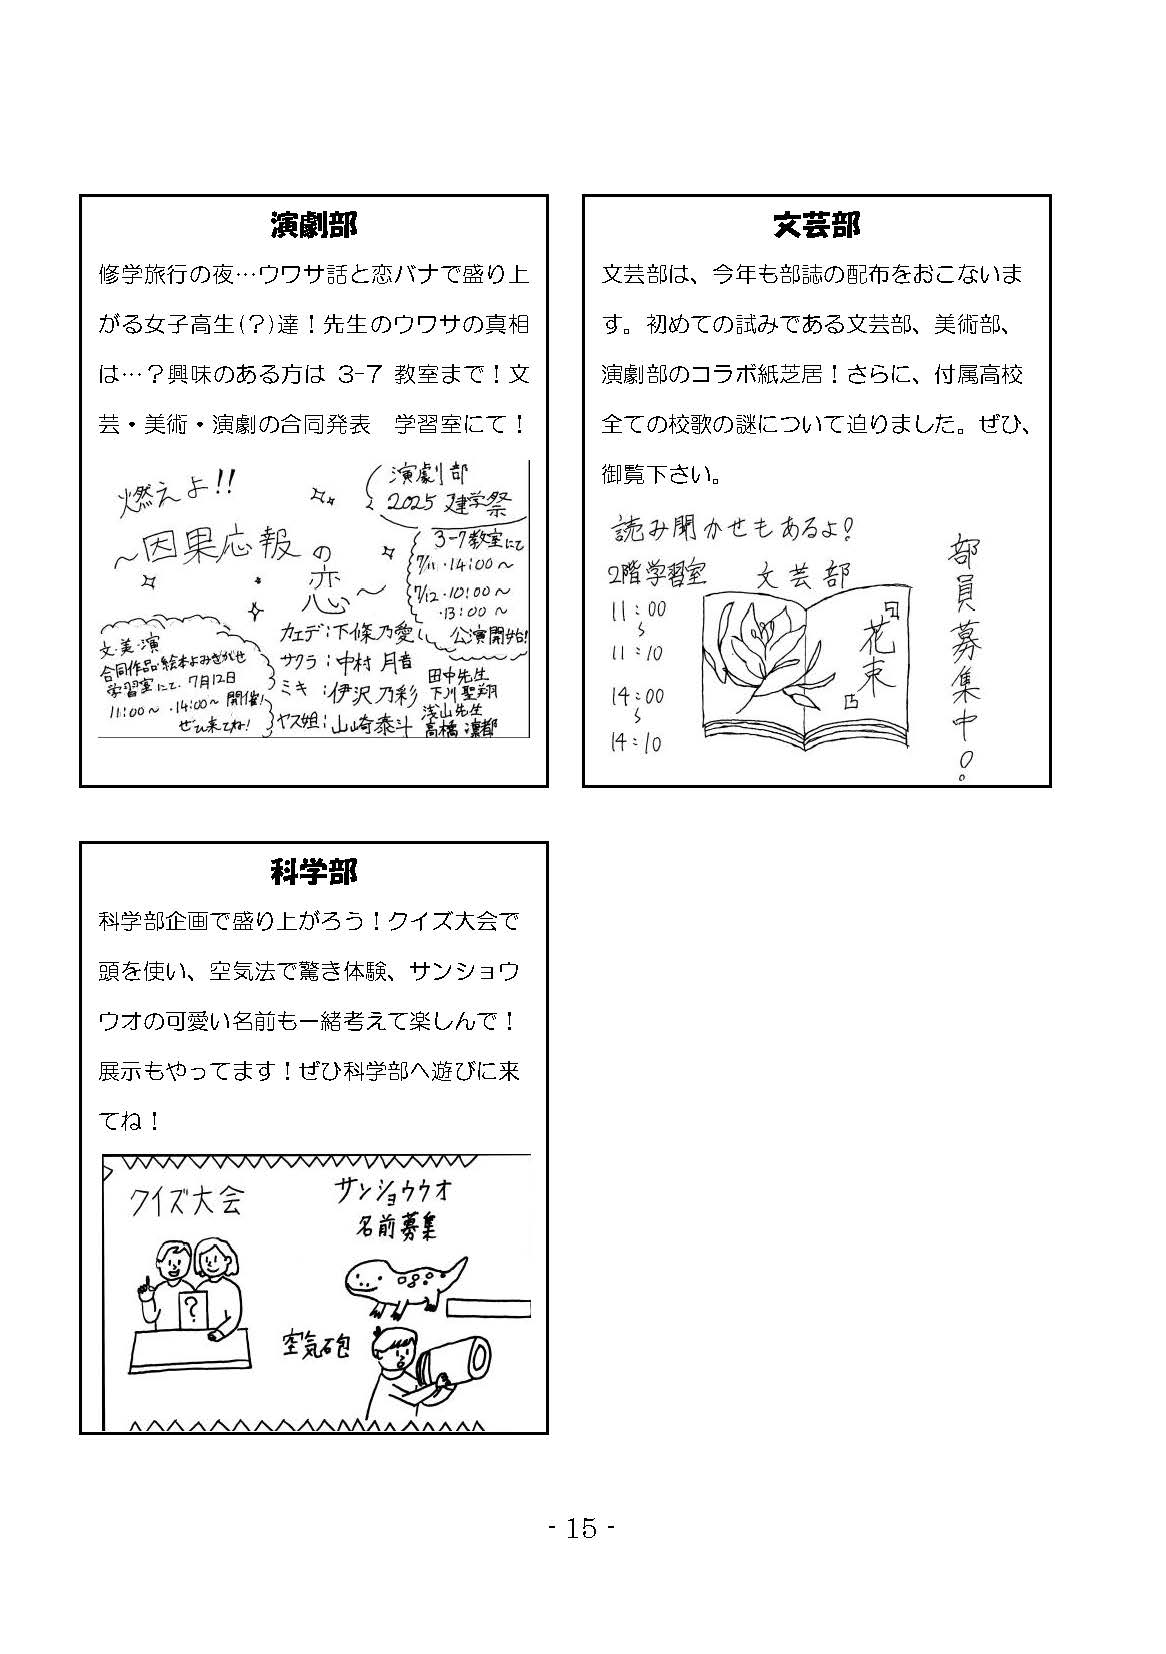 演劇部
修学旅行の夜…ウワサ話と恋バナで盛り上
がる女子高生(？)達！先生のウワサの真相
は…？興味のある方は 3-7 教室まで！文
芸・美術・演劇の合同発表　学習室にて！
燃えよ!!
～因果応報の
恋～
演劇部
2025 建学祭
3-7教室にて
7/11・14:00～
7/12・10:00～
・13:00～
公演開始!
文・美・演
合同作品・絵本よみきかせ
学習室にて・7月12日
11:00～・14:00～開催!
ぜひ来てね!
カエデ：下條乃愛
サクラ：中村 月音
ミキ：伊沢乃彩
ヤス姐：山崎泰斗
田中先生
下川聖翔
浅山先生
高橋凛都
文芸部
文芸部は、今年も部誌の配布をおこないま
す。初めての試みである文芸部、美術部、
演劇部のコラボ紙芝居！さらに、付属高校
全ての校歌の謎について迫りました。ぜひ、
御覧下さい。
読み聞かせもあるよ!
2階学習室
11:00
～
11:10
14:00
～
14:10
文芸部
『花束』
部員募集中!
科学部
科学部企画で盛り上がろう！クイズ大会で
頭を使い、空気法で驚き体験、サンショウ
ウオの可愛い名前も一緒考えて楽しんで！
展示もやってます！ぜひ科学部へ遊びに来
てね！
クイズ大会
サンショウウオ
名前募集
?
空気砲
- 15 -